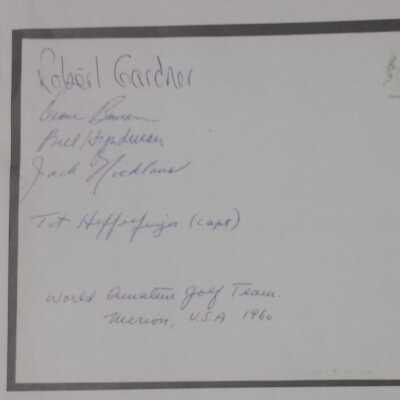 Robert Gardner
Deane Beman
Bill Hyndman
Jack Nicklaus
Tot Heffelfinger (capt)
World Amateur Golf Team.
Merion, USA 1960